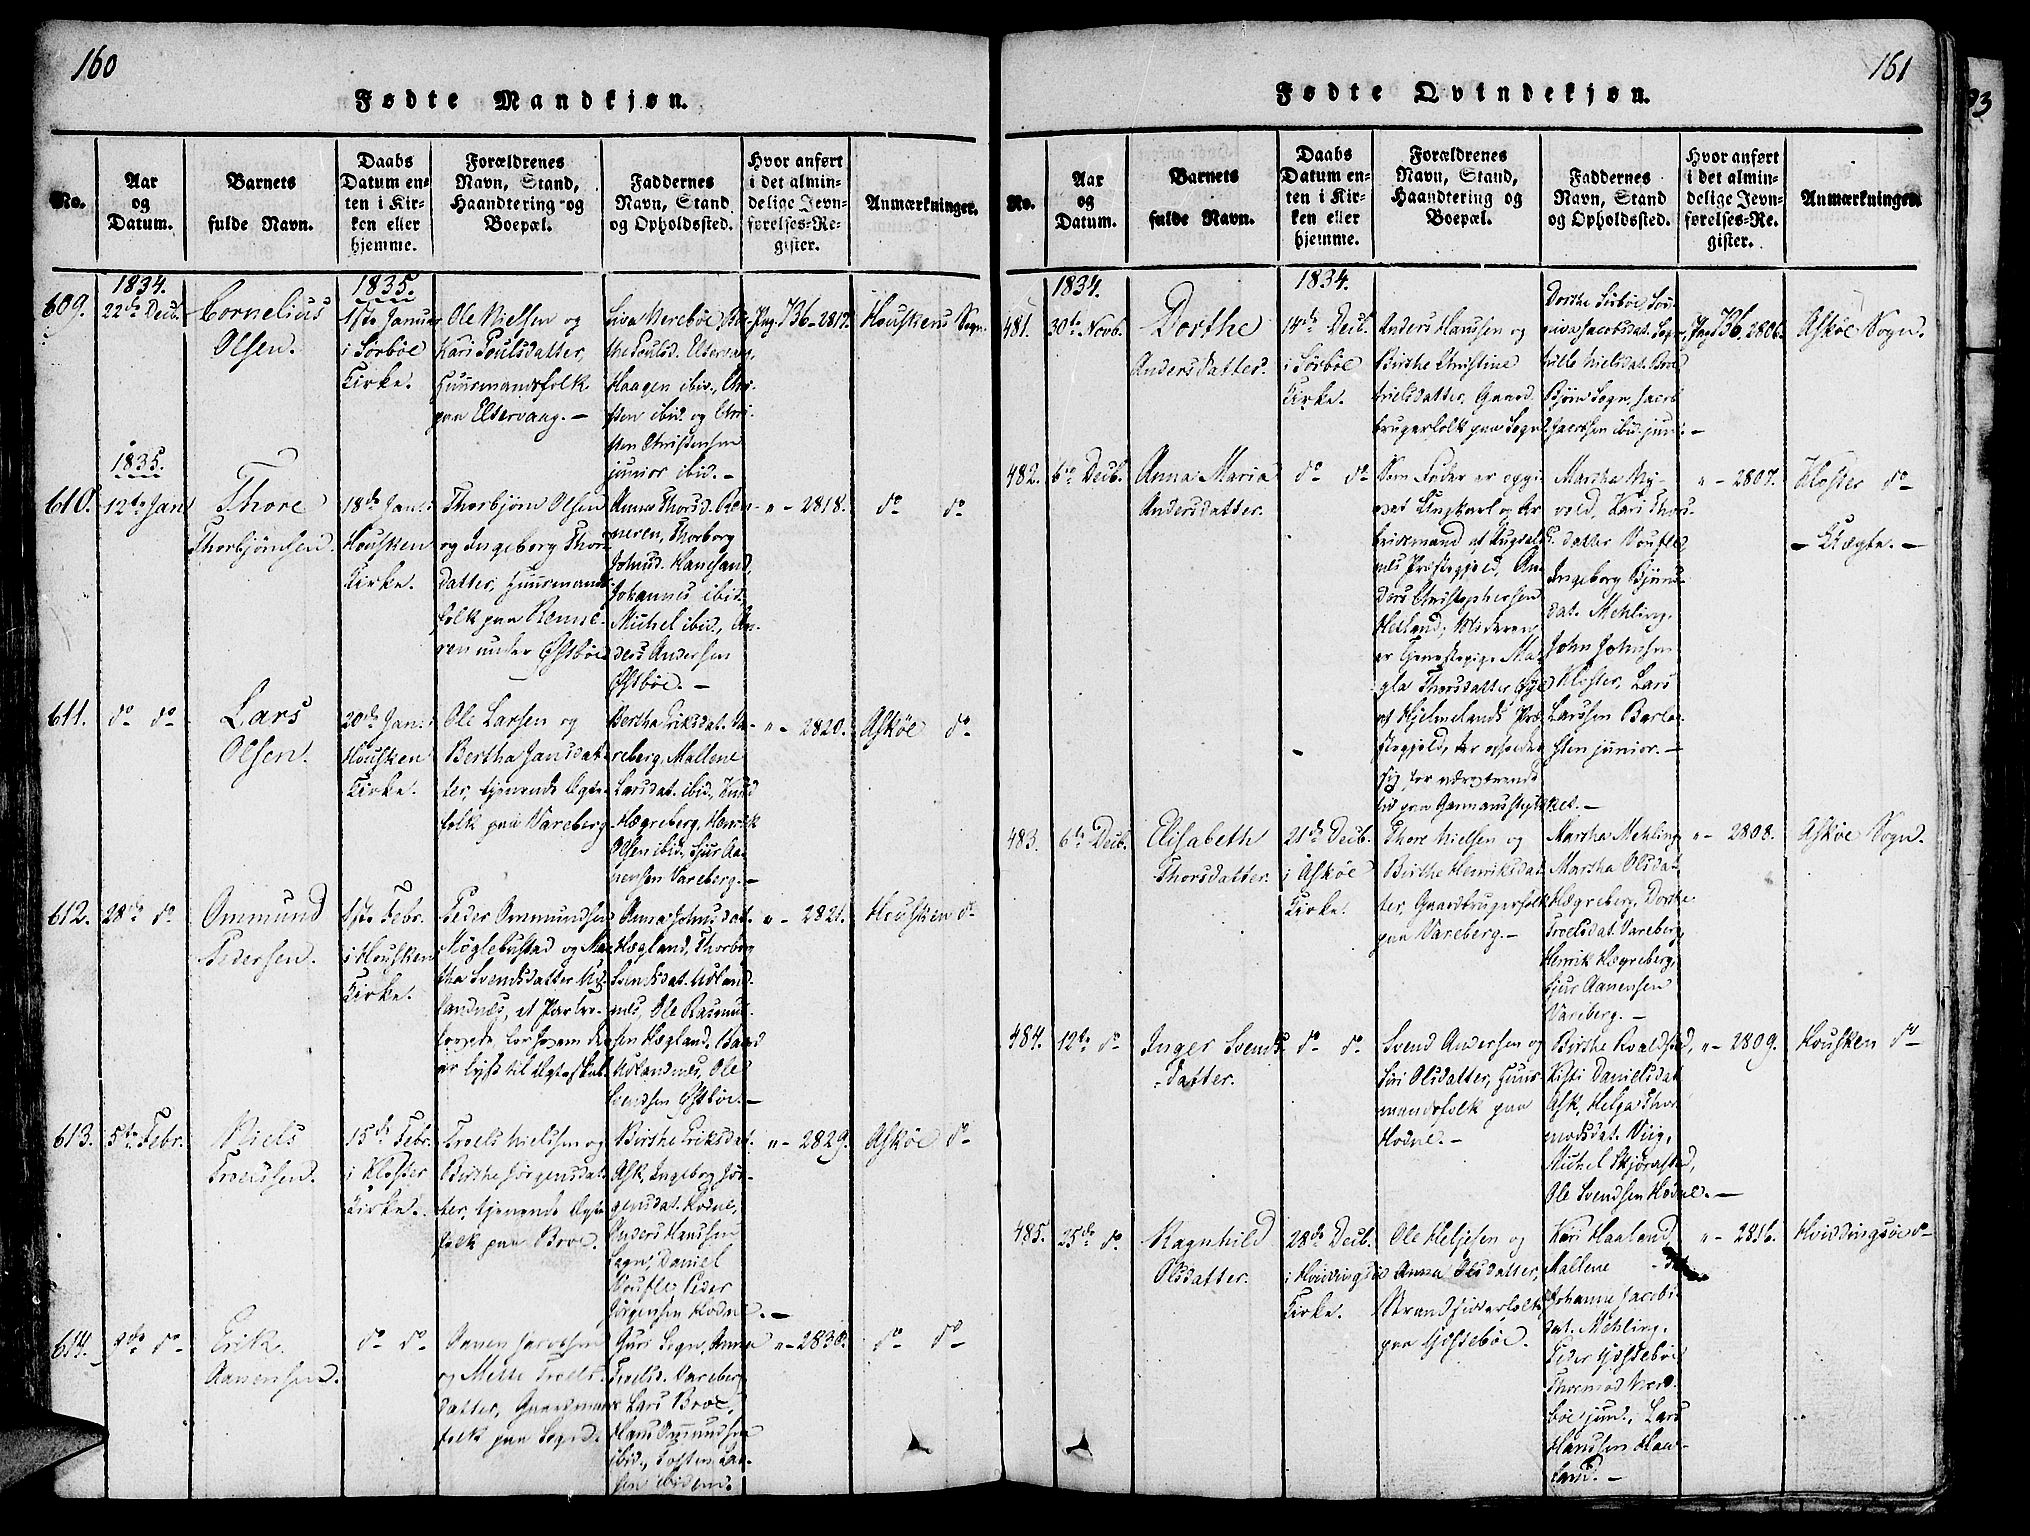 160
Fødte Mandkjøn.
No.
Aar
og
Datum.
Barnets
fulde Navn.
Daabs
Datum en-
ten i Kir-
ken eller
hjemme.
Forældrenes
Navn, Stand,
Haandtering og
Boepæl.
Faddernes
Navn, Stand
og Opholdssted.
Hvor anført
i det almin-
delige Jevn-
førelses-Re-
gister.
Anmærkninger.
609.
1834.
22de Decb.
Cornelius
Olsen.
1835.
1ste Januar
i Sørbøe
Kirke.
Ole Nielsen og
Kari Poulsdatter,
Huusmandsfolk
paa Eltervaag. –
Siva Nerebøe
the Poulsd. Eltervaag,
Haagen ibid., Chri-
sten ibid. og Chri-
sten Christensen
junior ibid. –
Pag. 736 – 2817.
Houskens Sogn.
1835.
610.
12te Jan
Thore
Thorbjönsen.
18de Jan.
Housken
Kirke.
Thorbjörn Olsen
og Ingeborg Thors-
datter, Huusmands-
folk paa Renne-
ren under Østbøe
Anna Thorsd. Ren-
neren, Thorborg
Johnsd. Haneland,
Johannes ibid.
Michel ibid., An-
ders Andersen
Østbøe. –
" – 2818.
do do
611.
do do
Lars
Olsen.
20de Jan.
Housken
Kirke.
Ole Larsen og
Bertha Jansdat-
ter, tjenende Ægte-
folk paa Vareberg
Bertha Eriksdat. Va-
reberg, Mallene
Larsdat. ibid., Knud
Hægreberg, Henrik
Olsen ibid., Sjur Aa-
nensen Vareberg. –
" – 2820.
Askøe do
612.
28de do
Ommund
Pedersen.
1ste Febr.
i Housken
Kirke.
Peder Ommundsen
Møglebustad og Mar-
tha Svendsdatter Ud-
landnæs, et Par
er lyst til Ægteskab.
Anna Johnsdat.
Hægland, Thorborg
Svendsdat. Udland-
næs, Ole Rasmus-
sen Hægland, Baard
Udlandnæs, Ole
Svendsen Østbøe. –
" – 2821.
Housken do
613.
5te Febr.
Niels
Troelssen.
15de Febr.
i Kloster
Kirke.
Troels Nielssen og
Birthe Jörgensdat-
ter, tjenende Ægte-
folk paa Broe.
Birthe Eriksdat.
Ask, Ingeborg Jör-
gensdat. Hodne,
Anders Hanssen
Sogn, Daniel
Voufle, Peder
Jörgensen Hodne. –
" – 2829.
Askøe do
614.
9de do
Erik
Aanensen.
do do
Aanen Jacobsen
og Mette Troels-
datter, Gaardmands-
folk paa Sogn.
Guri Sogn, Anna
Troelsd. Vareberg
Lars Broe,
Hans Ommundsen
ibid., Tosten Lar-
sen ibidem.
" – 2830.
do do
161
Fødte Qvindekjøn.
No.
Aar
og
Datum.
Barnets
fulde Navn.
Daabs
Datum en-
ten i Kir-
ken eller
hjemme.
Forældrenes
Navn, Stand,
Haandtering og
Boepæl.
Faddernes
Navn, Stand
og Opholdssted.
Hvor anført
i det almin-
delige Jevn-
førelses-Re-
gister.
Anmærkninger
481.
1834.
30te Novb.
Dorthe
Andersdatter.
1834.
14de Decb.
i Sørbøe
Kirke.
Anders Hanssen og
Birthe Christine
Nielsdatter, Gaard-
brugerfolk paa Sogn.
Dorthe Sörbøe, Sou-
Jacobsdat. Sogn,
Nielsdat. Broe
Björn Sogn, Jacob
Jacobsen ibid. jun. –
Pag. 736, 2806.
Askøe Sogn.
482.
6te Decb.
Anna Maria
Andersdatter.
do do
Som Fader er opgi-
vet Ungkarl og Ar-
beidsmand af Augdal-
næs Præstegjeld, An-
ders Christophersen
Hesland; Moderen
er Tjenestepige Ma-
gla Thorsdatter
af Hjelmelands Præ-
stegjeld, der opholder
sig for nærværende
tid paa
Martha My-
vold, Kari Thors-
datter Voufle,
Ingeborg Björns-
dat. Mehling,
John Johnsen
Kloster, Lars
Larssen Barlo-
sten junior. –
" – 2807.
Kloster do
– Uægte. –
483.
6te Decb.
Elisabeth
Thorsdatter.
21de Decb.
i Askøe
Kirke.
Thore Nielsen og
Birthe Henriksdat-
ter, Gaardbrugerfolk
paa Vareberg. –
Martha Mehling,
Martha Olsdat.
Hægreberg, Dorthe
Troelsdat. Vareberg,
Henrik Hægreberg,
Sjur Aanensen
Vareberg. –
" – 2808.
Askøe Sogn.
484.
12te do
Inger Svends-
datter.
do do
Svend Andersen og
Siri Olsdatter, Huus-
mandsfolk paa
Hodne. –
Birthe Kvalsted,
Kisti Danielsdat.
Ask, Helga Thor-
modsdat. Viig,
Michel Skjørestad,
Ole Svendsen Hodne. –
" – 2809.
Housken do
485.
25de do
Ragnhild
Olsdatter.
28de Decb.
i Hvidingsø
Kirke.
Ole Heljesen og
Anna Olsdatter,
Strandsidderfolk
paa Gjestebøe.
Kari Haaland,
Mallene
Johanne Jacobs-
dat. Mehling,
Peder Gjestebøe
Thormod Nere-
bøe jun., Lars
Hanssen Haa-
land. –
" – 2816.
Hviddingsøe do